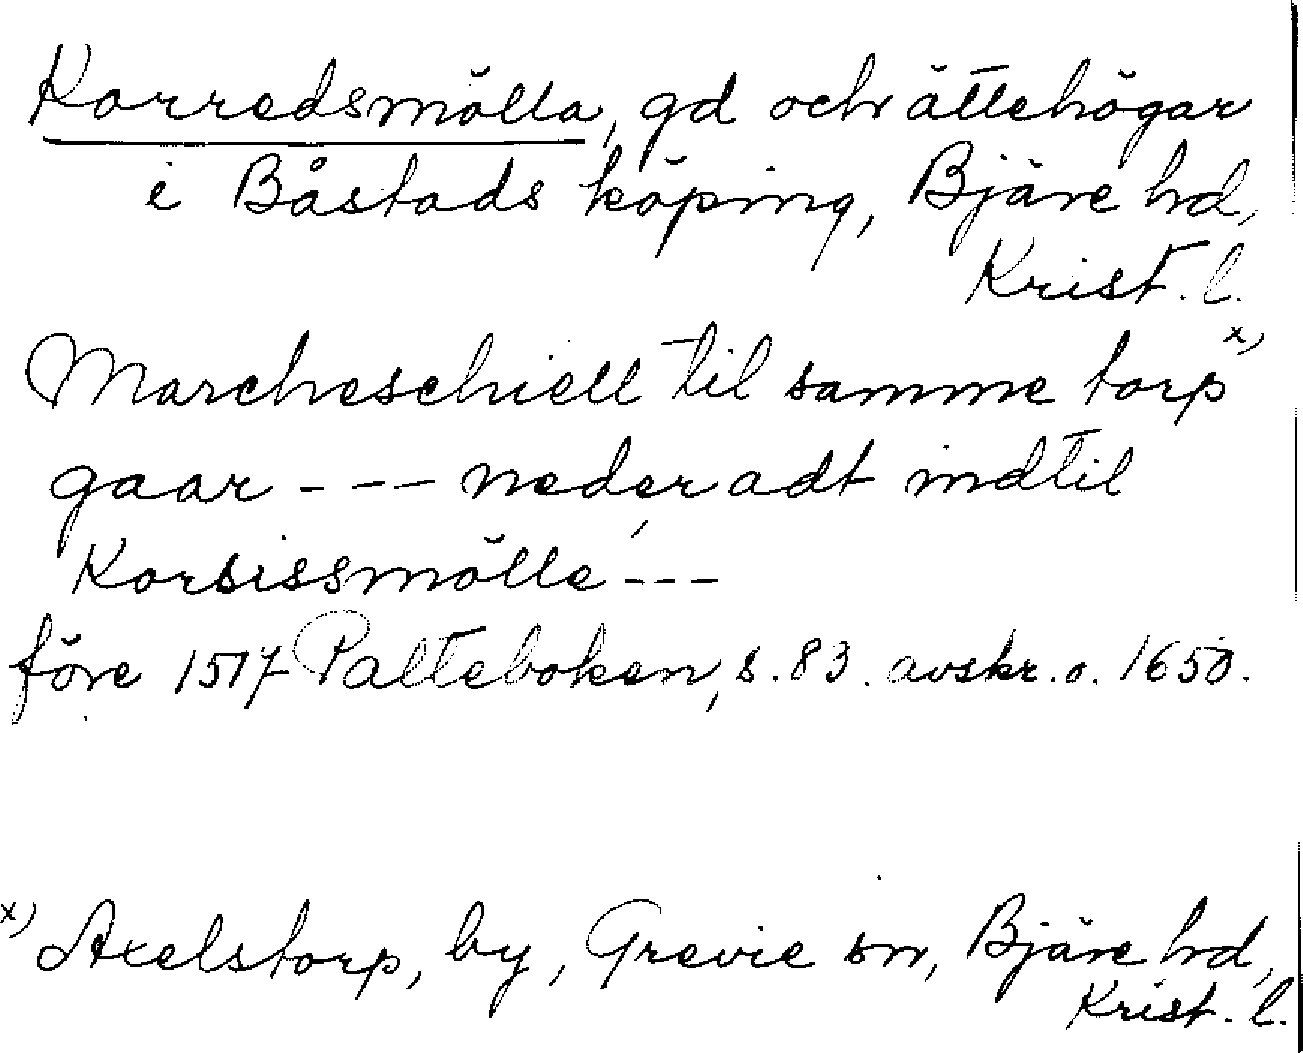 Korredsmölla, gd och ättehögar
i Båstads köping, Bjäre hd,
Krist. l.
Marcheschiell til samme torp x)
gaar - - - neder adt indtil
Korsissmölle - - -
före 1517 Palteboken, s. 83. avskr. o. 1650.
x) Axelstorp, by, Grevie sn, Bjäre hd,
Krist. l.